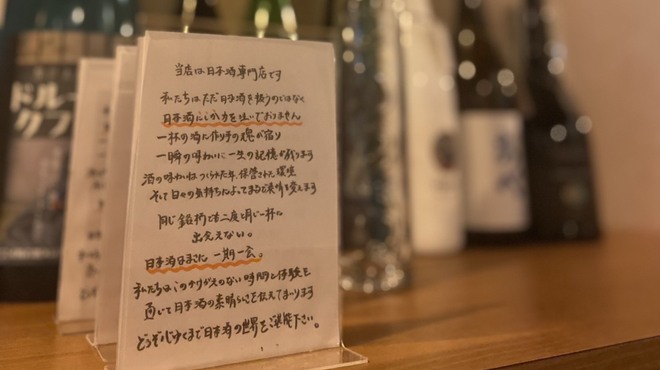 当店は日本酒専門店です
私たちはただ日本酒を扱うのではなく
日本酒にしか力を注いでおりません
一杯の酒に作り手の魂が宿り
一瞬の味わいに一生の記憶が残ります
酒の味わいはつくられた年、保管された環境
そして日々の気持ちによってまるで表情を変えます
同じ銘柄でも二度と同じ一杯に
出会えない。
日本酒はまさに一期一会。
私たちはこのかけがえのない時間と体験を
通じて日本酒の素晴らしさを伝えてまいります
どうぞ心ゆくまで日本酒の世界をご堪能下さい。
ドルー
クラフ